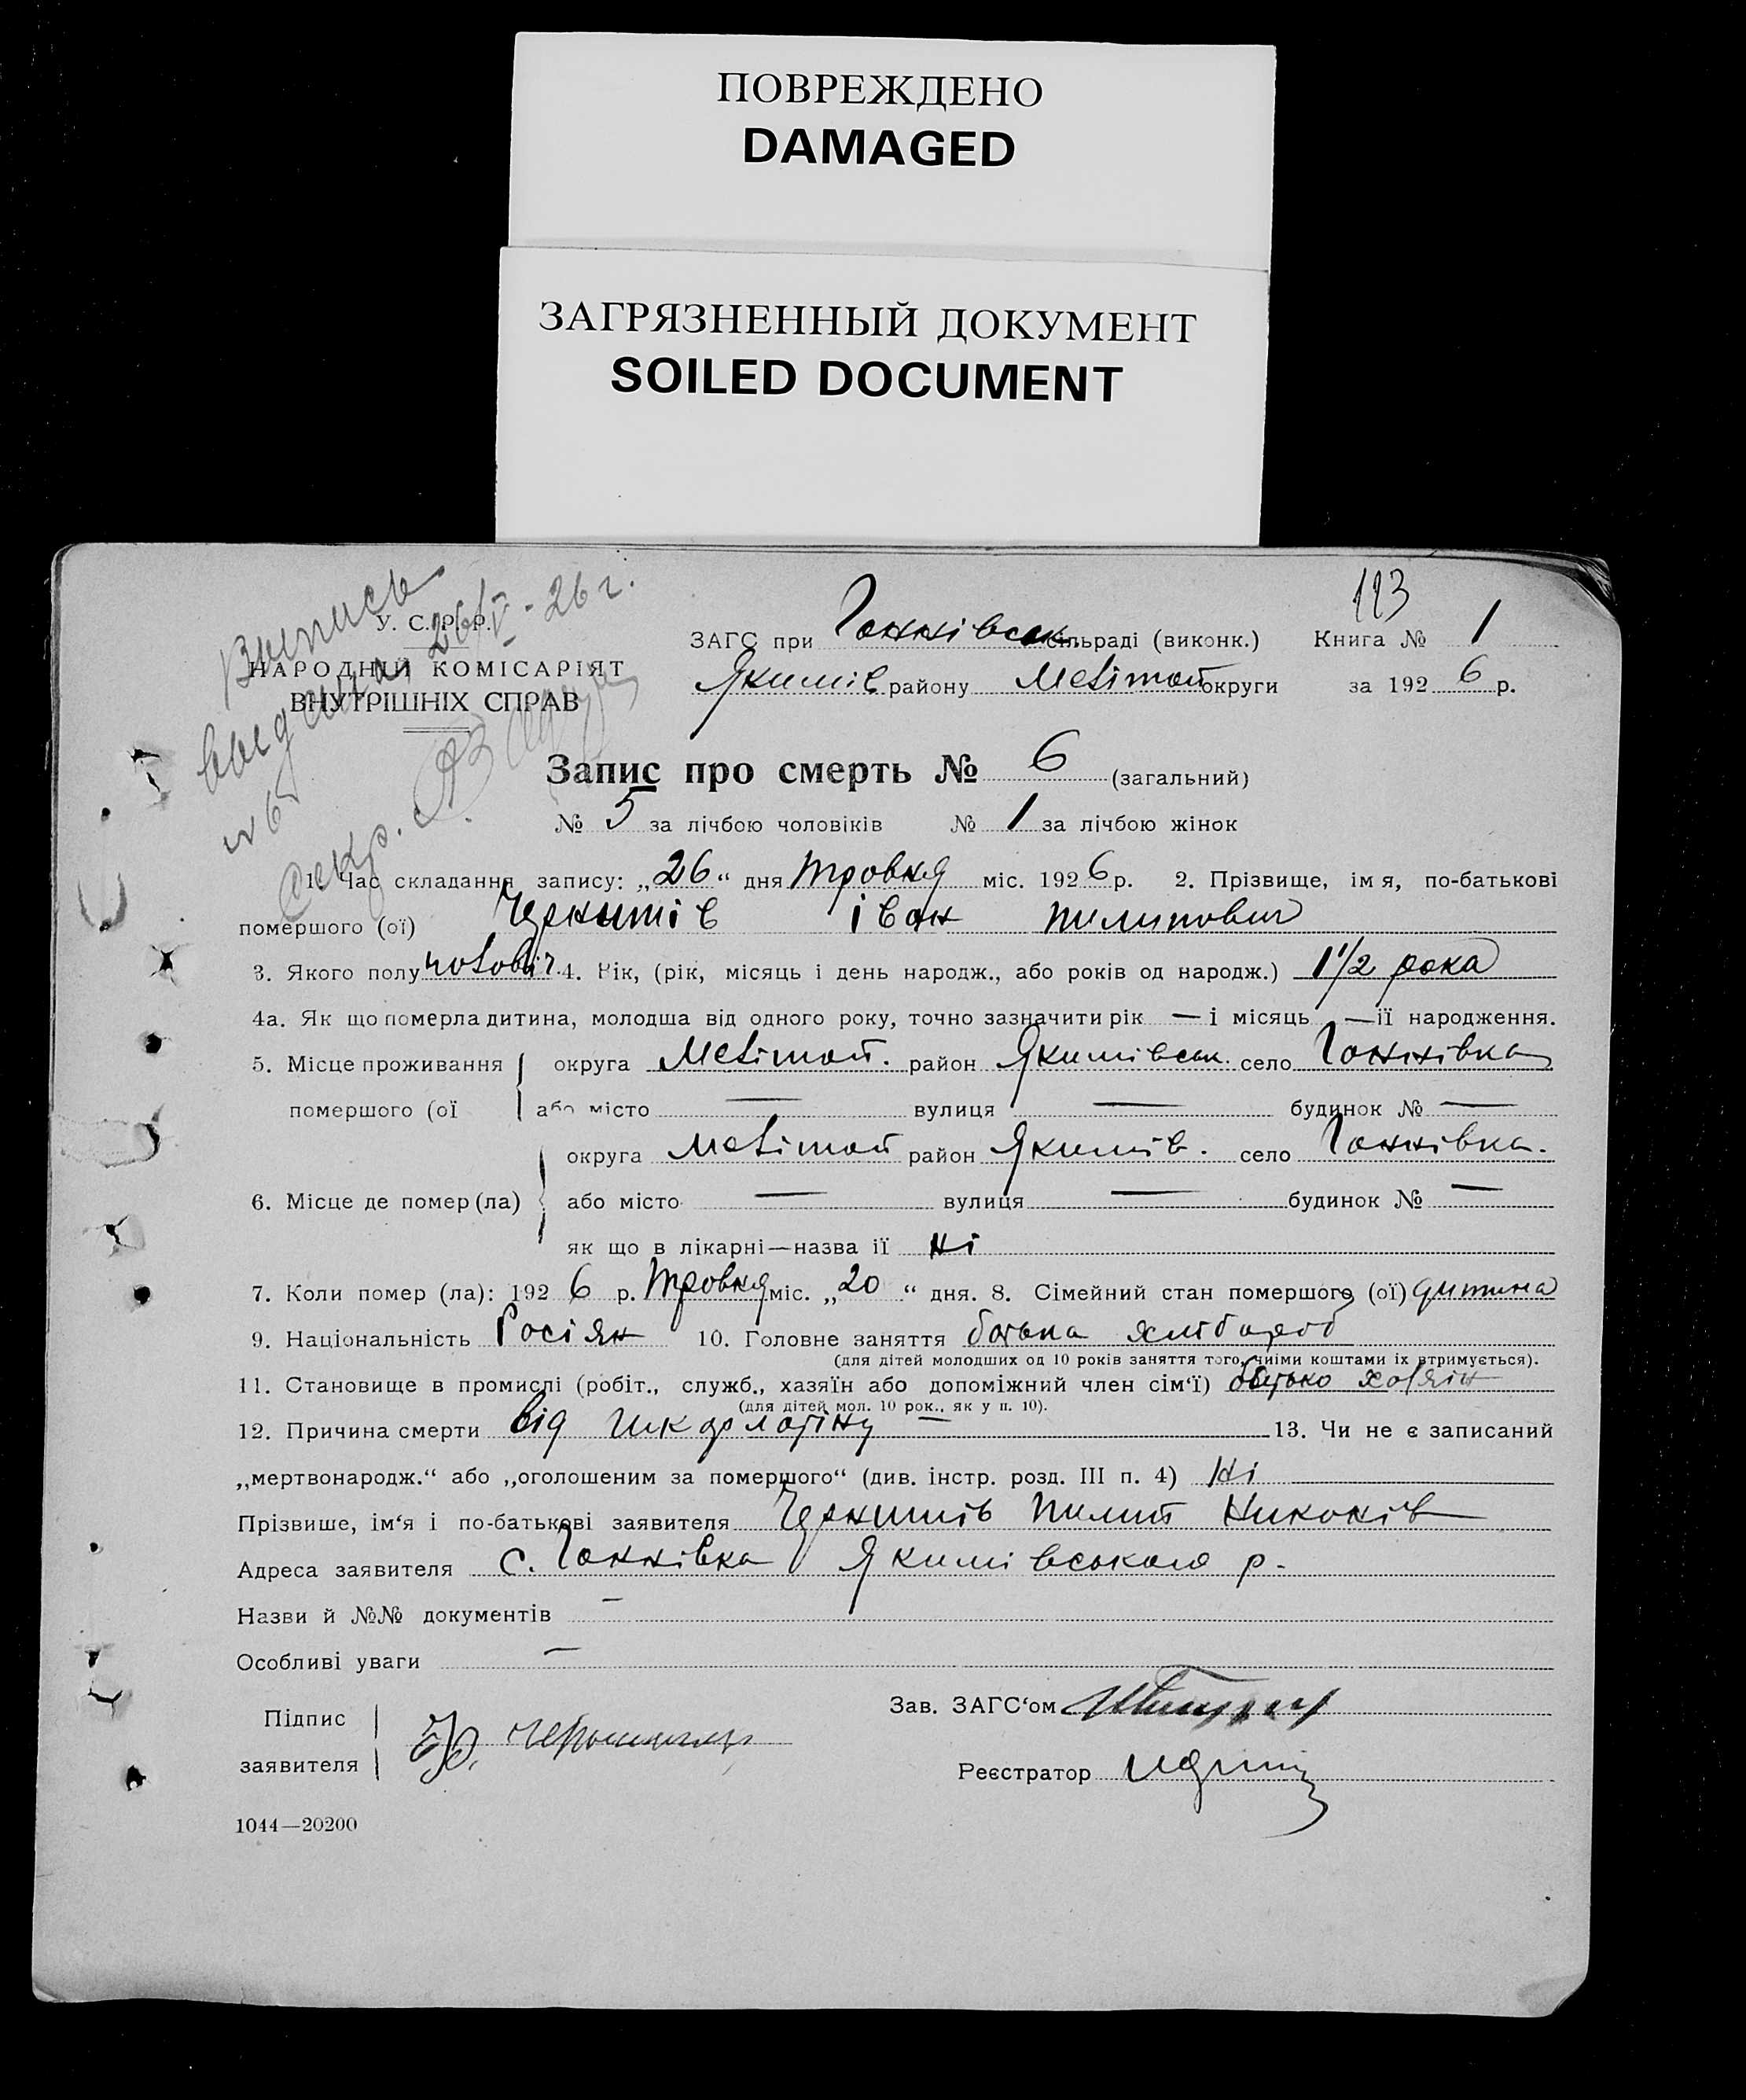 ПОВРЕЖДЕНО
DAMAGED
ЗАГРЯЗНЕННЫЙ ДОКУМЕНТ
SOILED DOCUMENT
Выпись
выдана 26/V-26 г.
№ 6
Секр.
113
У. С. Р. Р.
НАРОДНИЙ КОМІСАРІЯТ
ВНУТРІШНІХ СПРАВ
ЗАГС при Ганнівськ. сільраді (виконк.) Книга № 1
Якимів району Мелітоп округи за 1926 р.
Запис про смерть № 6 (загальний)
№ 5 за лічбою чоловіків № 1 за лічбою жінок
1. Час складання запису: „26“ дня травня міс. 1926 р. 2. Прізвище, імя, по-батькові
помершого (ої) іван пилипович
3. Якого полу чоловіч. 4. Вік, (рік, місяць і день народж., або років од народж.) 1 1/2 рока
4а. Як що померла дитина, молодша від одного року, точно зазначити рік — і місяць — її народження.
5. Місце проживання округа Мелітоп. район Якимівськ. село Ганнівка
помершого (ої або місто — вулиця — будинок № —
округа Мелітоп район Якимів. село Ганнівка.
6. Місце де помер (ла) або місто — вулиця — будинок № —
як що в лікарні—назва її ні
7. Коли помер (ла): 1926 р. травня міс. „20“ дня. 8. Сімейний стан помершого (ої) дитина
9. Національність Росіян 10. Головне заняття батька хлібороб
(для дітей молодших од 10 років заняття того, чиїми коштами їх втримується).
11. Становище в промислі (робіт., служб., хазяїн або допоміжний член сім‘ї) батько хазяїн
(для дітей мол. 10 рок., як у п. 10).
12. Причина смерти від — 13. Чи не є записаний
„мертвонародж.“ або „оголошеним за помершого“ (див. інстр. розд. III п. 4) Ні
Прізвише, ім‘я і по-батькові заявителя Пилип Никонів
Адреса заявителя с. Ганнівка Якимівського р.
Назви й №№ документів —
Особливі уваги —
Підпис
заявителя
Зав. ЗАГС‘ом
Реєстратор
1044—20200